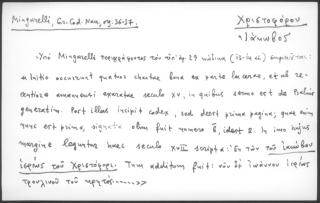 Mingarelli, Gr. Cod. Nan., σσ. 36-37.
Χριστοφόρου
Ἰάκωβος
Ὑπὸ Mingarelli περιγράφοντος τὸν ὑπ' ἀρ. 29 κώδικα
« Initio occurrunt quatuor chartae bona ex parte lacerae, et a re-
centiore amanuensi exaratae seculo XV, in quibus sermo est de Psalmis
generatim. Post illas incipit codex, sed deest prima pagina; quae enim
nunc est prima, signata olim fuit numero β, idest 2. In imo hujus
margine leguntur haec seculo XVII scripta: ἐκ τῶν τοῦ ἰακώβου
ἱερέως τοῦ Χριστοφόρου. Tum additum fuit: νῦν δὲ ἰωάννου ἱερέως
τρουλινοῦ τοῦ κρητός ------>>